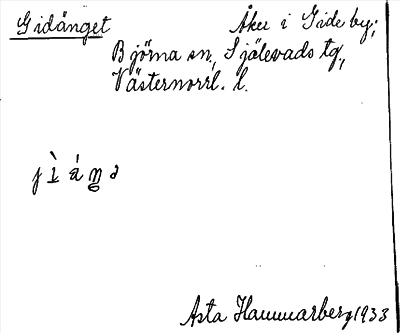 Gidånget Åker i Gide by,
Björna sn, Själevads tg,
Västernorrl. l.
Asta Hammarberg 1933